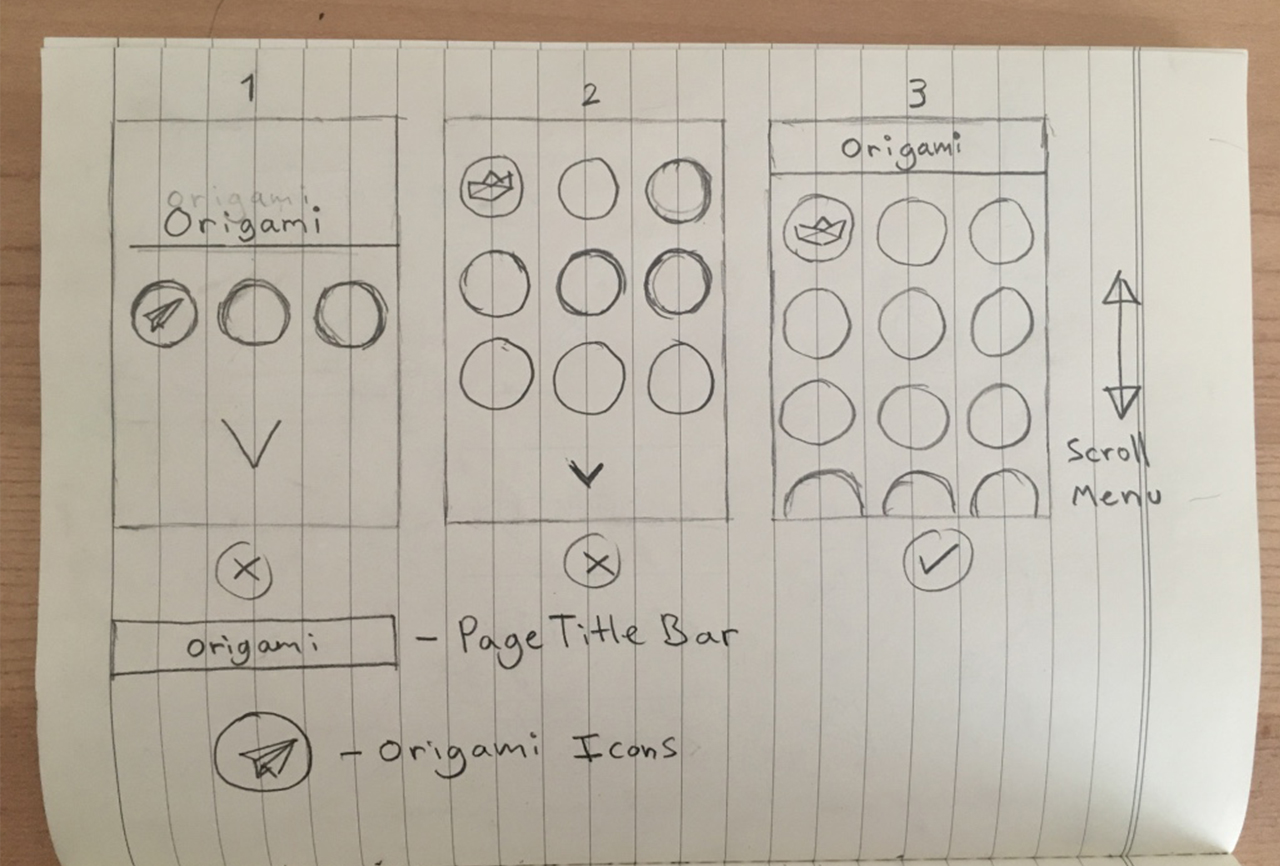 1
2
3
origami
Origami
Origami
Scroll
Menu
origami - Page Title Bar
- Origami Icons